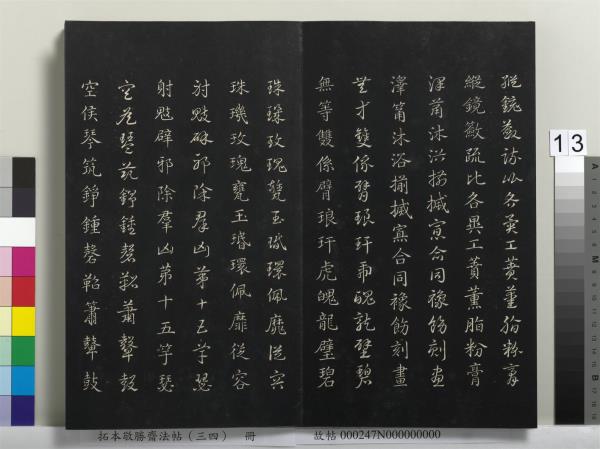 縱鏡斂疏比各異工蕢薰脂粉膏
縱鏡斂疏比各異工蕢薰脂粉膏
澤筩沐浴揃搣寡合同豫飭刻畫
澤筩沐浴揃搣寡合同豫飭刻畫
無等雙係臂琅玕虎魄龍璧碧
無等雙係臂琅玕虎魄龍璧碧
珠璣玫瑰甕玉璿環佩靡從容
珠璣玫瑰甕玉璿環佩靡從容
射魃辟邪除羣凶第十五竽瑟
射魃辟邪除羣凶第十五竽瑟
空侯琴筑錚鍾磬鞀簫鼙鼓
空侯琴筑錚鍾磬鞀簫鼙鼓
拓本敬勝齋法帖（三四） 冊 故帖 000247N000000000
13